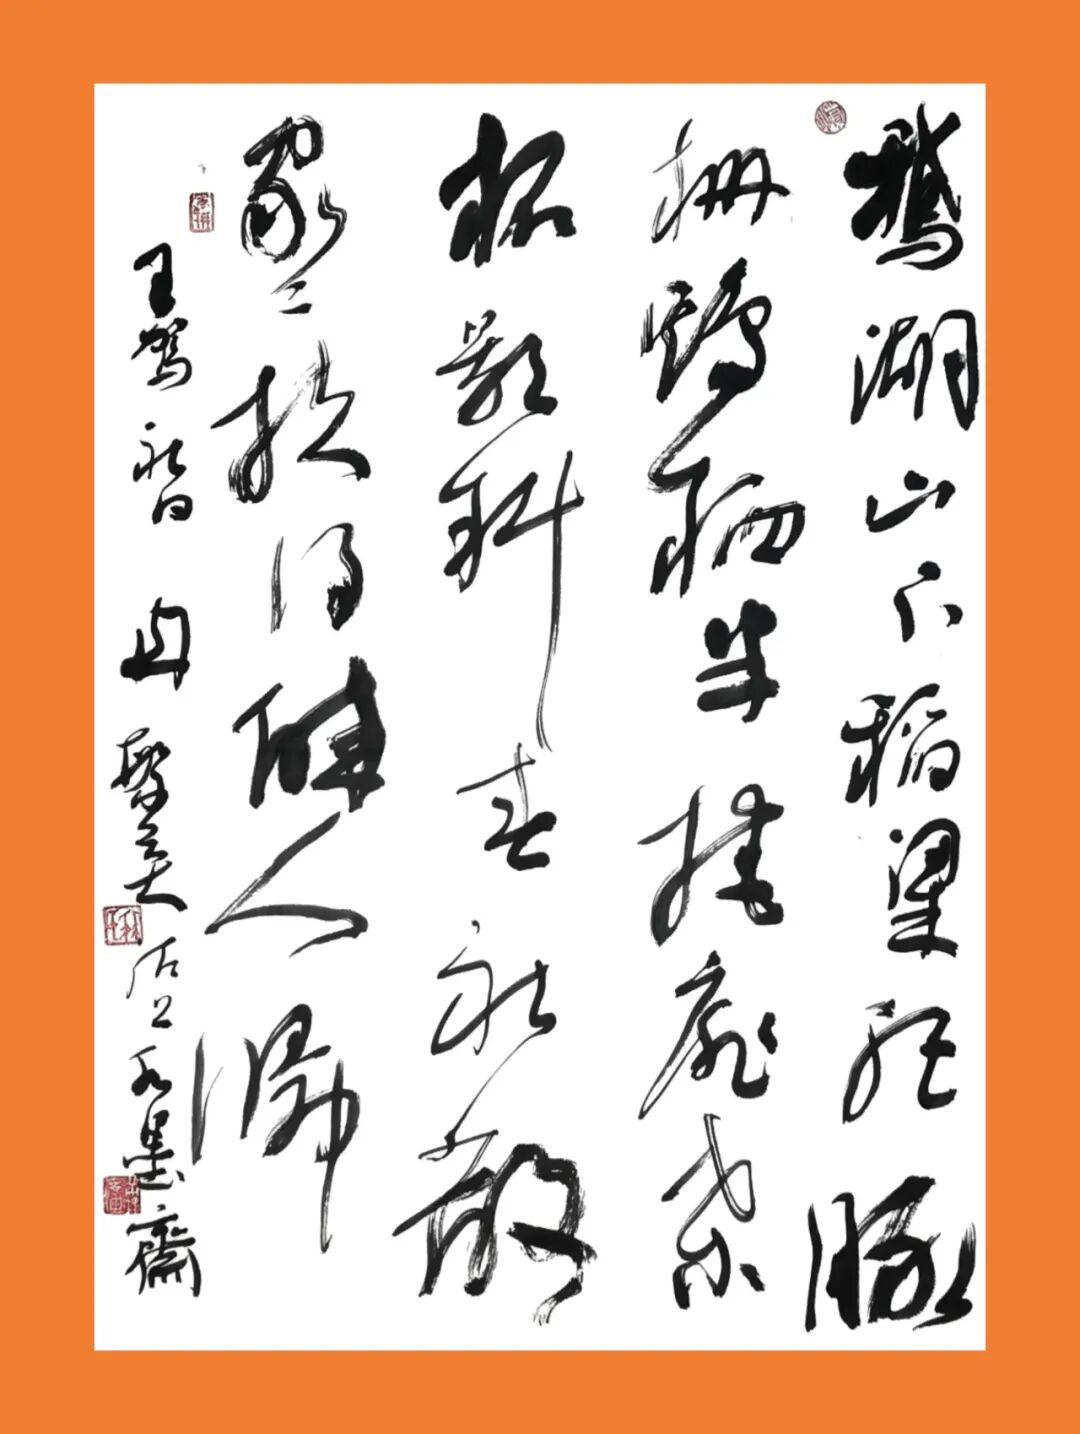 鵝湖山下稻粱肥豚
栅鷄栖半掩扉桑
柘影斜春社散
家々扶得醉人歸
王駕社日
水墨齋